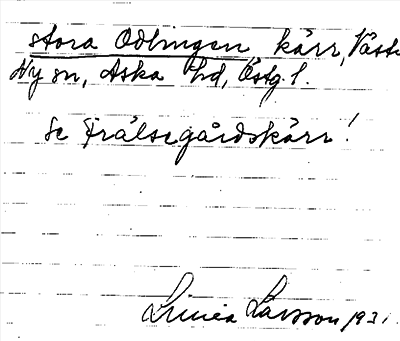 stora Odlingen kärr, Väst
Ny sn, Aska hd, Östg. l.
Se Frälsegårdskärr!
Linnéa Larsson 1931.